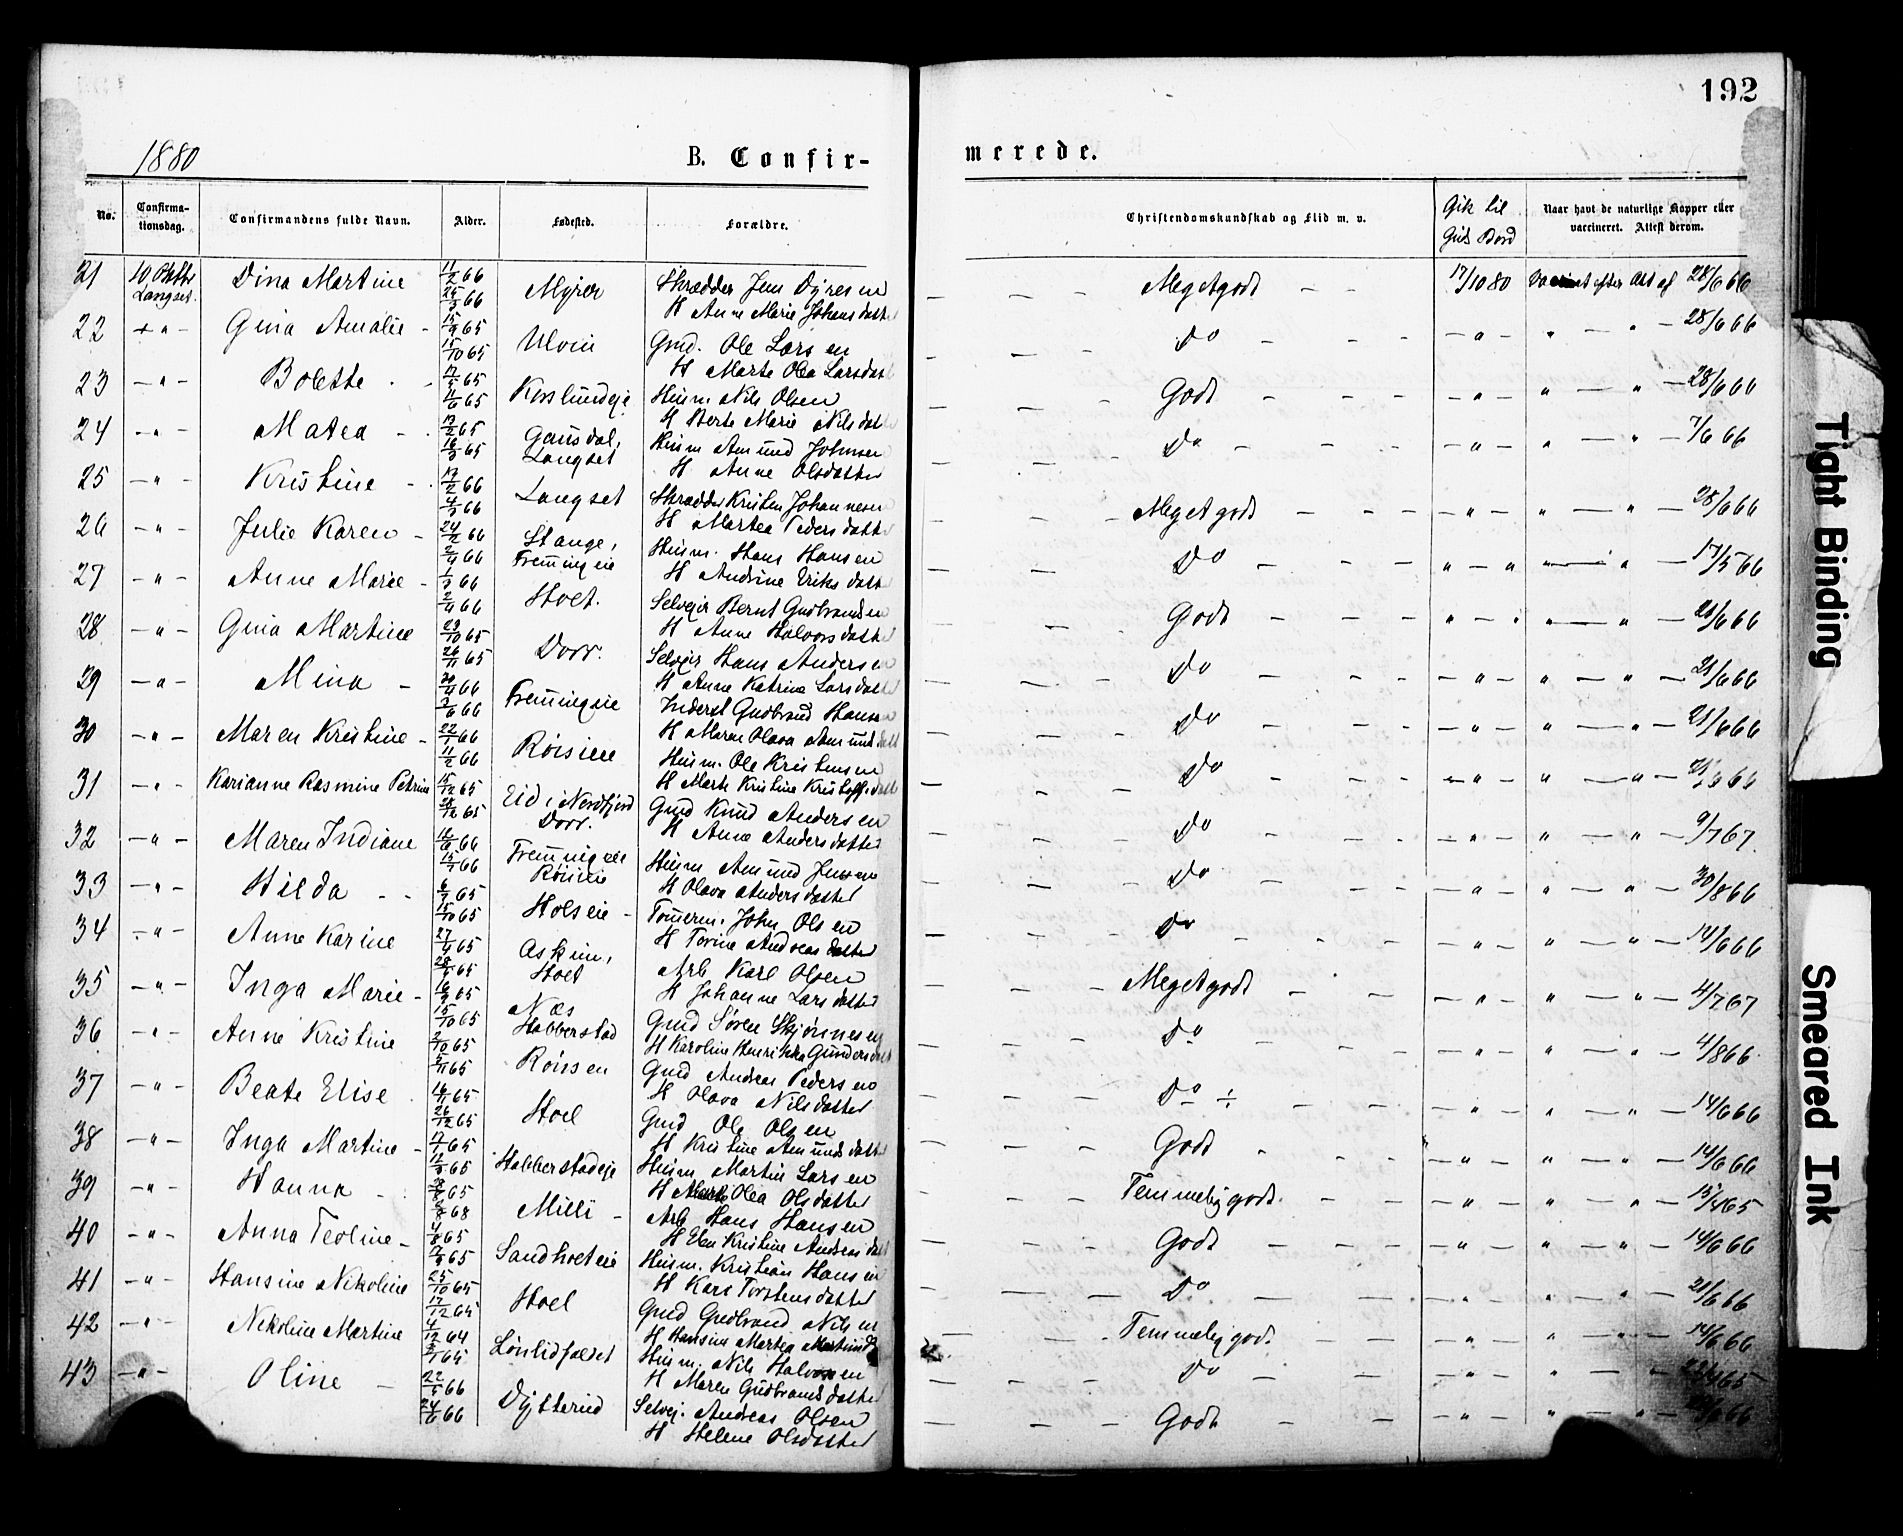 192
1880 B. Confir- merede.
No. Confirma-tionsdag. Confirmandens fulde Navn. Alder. Fødested. Forældre. Christendomskundskab og Flid m. v. Gik til Guds Bord Naar havt de naturlige Kopper eller vaccineret. Attest derom.
21 10 Octbr Langset. Dina Martine 11/2 66 25/3 66 Myrer Skrædder Jens Dyresen
H Anne Marie Johansdatter Meget godt – – 17/10 80 Vaccinert efter Att af 28/6 66
22 – " – Gina Amalie – 15/9 65 15/10 65 Ulvin Gmd. Ole Larsen
H Marte Olea Larsdatt Do – " – " – " – 28/6 66
23 – " – Bolette 17/5 65 11/6 65 Huusm Nils Olsen
H Berte Marie Nilsdatter Godt – " – " – " – 28/6 66
24 – " – Matea – 65 65 Gausdal, Langset Huusm Amund Johnsen
H Anne Olsdatter Do – " – " – " – 7/6 66
25 – " – Kristine 17/2 66 4/3 66 Langset Skrædder Kristen Johannesen
H Martea Pedersdatter Meget godt – " – " – " – 28/6 66
26 – " – Julie Karen – 24/2 66 2/4 66 Stange, Fremingeie Huusm. Hans Hansen
H Andrine Eriksdatt Do " – " " – " – 17/5 66
27 – " – Anne Marie – 66 2/4 66 Hoel. Selveier Bernt Gudbrandsen
H Anne Halvorsdatter Godt " – " " – " – 21/6 66
28 – " – Gina Martine 29/10 65 26/11 65 Dorr. Selveier Hans Andersen
H Anne Katrine Larsdatter Do – " – " – " – 21/6 66
29 – " – Mina – 20/4 66 3/6 66 Fremingeie Inderst Gudbrand Hansen
H Maren Olava Amundsdatt Do – " – " – " – 21/6 66
30 – " – Maren Kristine – 22/1 66 11/2 66 Røiseie Huusm. Ole Kristensen
H Marte Kristine Kristoffsdatt Do – " – " – " – 21/6 66
31 – " – Karianne Rasmine Petrine 15/12 65 28/12 65 Eid i Nordfjord Dorr. Gmd Knud Andersen
H Anne Andersdatter Do – " – " – " – 9/7 67.
32 – " – Maren Indiane 66 15/7 66 Fremingeie Røiseie Huusm Amund Jensen
H Olava Andersdatter Do – " – " – " – 30/8 66
33 – " – Hilda – – 6/9 65 15/10 65 Holseie – Tømerm. John Olsen
H Torine Andreasdatter Do – " – " – " – 14/6 66
34 – " – Anne Karine 27/4 65 28/5 65 Askim, Hoel Arb Karl Olsen
H Johanne Larsdatter Meget godt – " – " – " – 4/7 67
35 – " – Inga Marie – 16/9 65 15/10 65 Næs Habberstad Gmd Søren Skjønnesen
H Karoline Henrikka Gundersdatt Do – " – " – " – 4/8 66.
36 – " – Anne Kristine 2/10 65 5/11 65 Røisen Gmd Andreas Pedersen
H Olava Nilsdatter Do ÷ – " – " – " – 14/6 66
37 – " – Beate Elise 16/11 65 26/12 65 Hoel Gmd Ole Olsen
H Kristine Amundsdatter Godt – " – " – " – 14/6 66
38 – " – Inga Martine – 65 12/3 65 Habberstadeje Huusm Martin Larsen
H Marte Olea Olsdatter Temmelig godt. – " – " – " – 15/4 65
39 – " – Hanna – 65 68 Milli – Arb Hans Hansen
H Elen Kristine Andreasdatt Godt – " – " – " – 14/6 66
40 – " – Anna Teoline – 65 65 Sandholteie Huusm. Kristian Hansen
H Kari Torstensdatter Do – " – " – " – 21/6 66
41 – " – Hansine Nikoline 25/10 65 17/12 65 Hoel Gmd Gudbrand Nilsen
H Hansine Martea Temmelig godt. – " – " – " – 14/6 66
42 – " – Nikoline Martine 4/12 64 65 Lønlidfaldet Huusm. Nils Halvorsen
H Maren Gudbrandsdatter Do – " – " – " – 65
43 – " – Oline – 22/5 66 24/6 66 Dytterud Selvej. Andreas Olsen
H Helene Olsdatter Godt – " – " – " – 66
Tight Binding
Smeared Ink